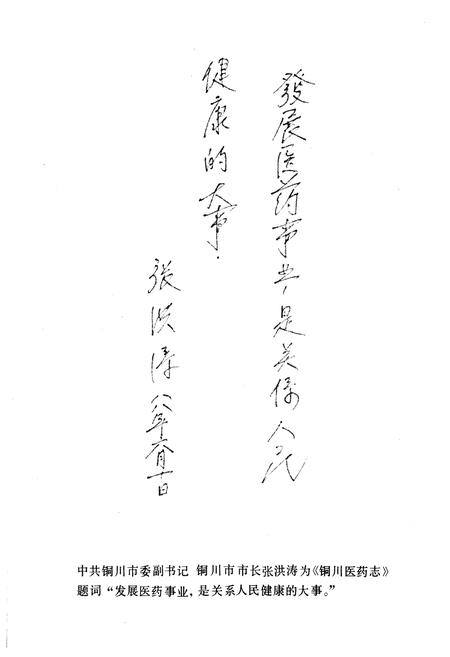 發展医药事业，是关係人民
健康的大事．
张洪涛 八八年六月十日
中共铜川市委副书记 铜川市市长张洪涛为《铜川医药志》
题词“发展医药事业，是关系人民健康的大事。”